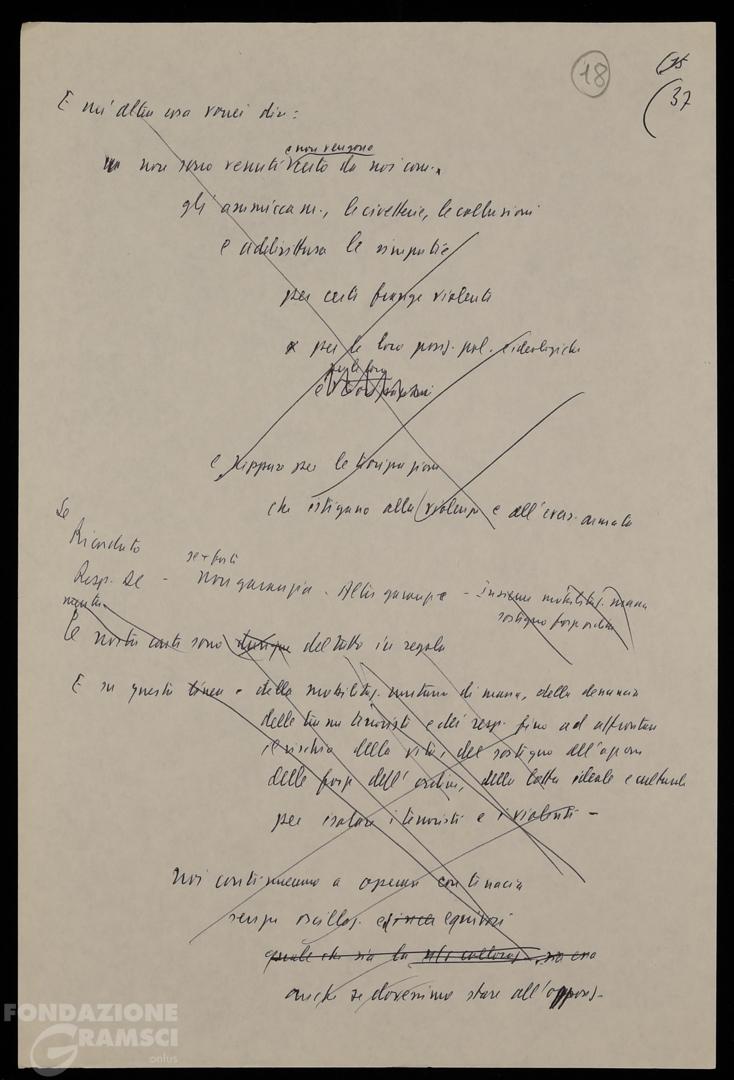 18
(35
(37
E un'altra cosa vorrei dire:
e non vengono
non sono venuti certo da noi com.,
gli ammiccam., le civetterie, le collusioni
e addirittura le simpatie
per certe frange violente
e per le loro posiz. pol. e ideologiche
per le loro
e
e neppure per le
che istigano alla violenza e all'evers. armata
Se
Ricordato
se + forti
Resp. DC - Non garanzia. Altre garanzie - Insieme mobilitaz. massa
sostegno forze ordine
Le nostre carte sono dunque del tutto in regola
E su questa linea - della mobilitaz. unitaria di massa, della denuncia
delle trame terroristi e dei resp. fino ad affrontare
il rischio della vita, del sostegno all'opera
delle forze dell'ordine, della lotta ideale e culturale
per isolare i terroristi e i violenti -
Noi continueremo a operare con tenacia
senza oscillaz. ed equivoci
quale che sia la ns/ collocaz.
anche se dovessimo stare all'oppos.
FONDAZIONE
GRAMSCI
onlus